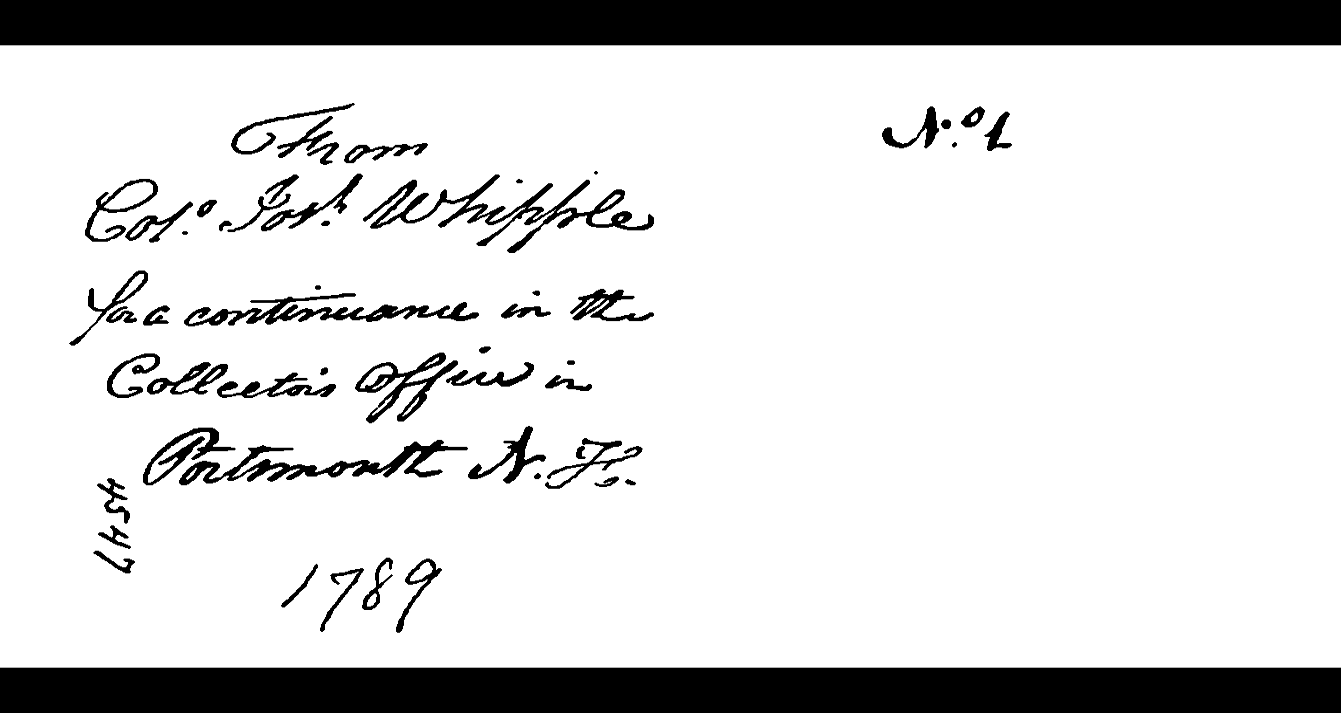 From
Col.º Jos.h Whipple
for a continuance in the
Collector's Office in
Portsmouth N. H.
1789
4547
N.º 1